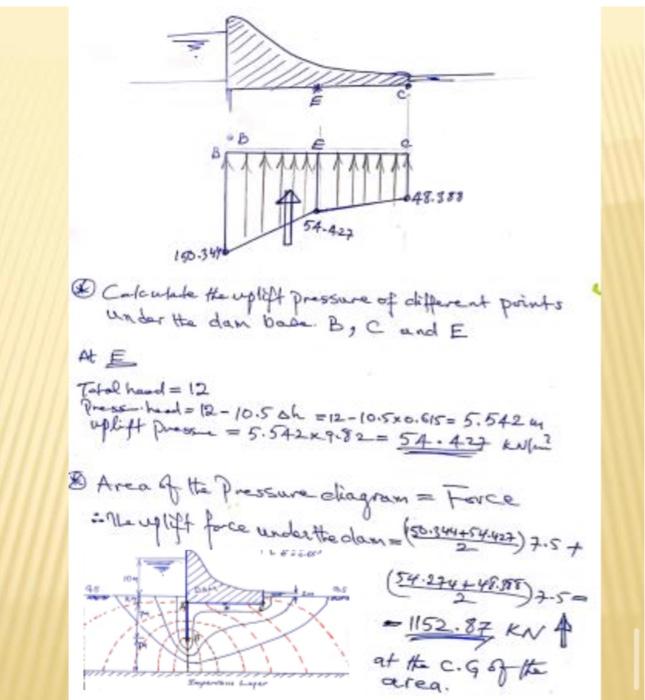 E
C
B
B
E
C
48.388
54.427
150.344
Calculate the uplift pressure of different points
under the dam base. B, C and E
At E
Total head = 12
Press. head = 12 - 10.5 Δh = 12 - 10.5 x 0.615 = 5.542 m
uplift pressure = 5.542 x 9.82 = 54.427 KN/m²
Area of the Pressure diagram = Force
∴ The uplift force under the dam = (150.344+54.427 / 2) 7.5 +
(54.274 + 48.388 / 2) 7.5 =
= 1152.87 KN
at the C.G of the
area.
10m
DAM
Impervious Layer